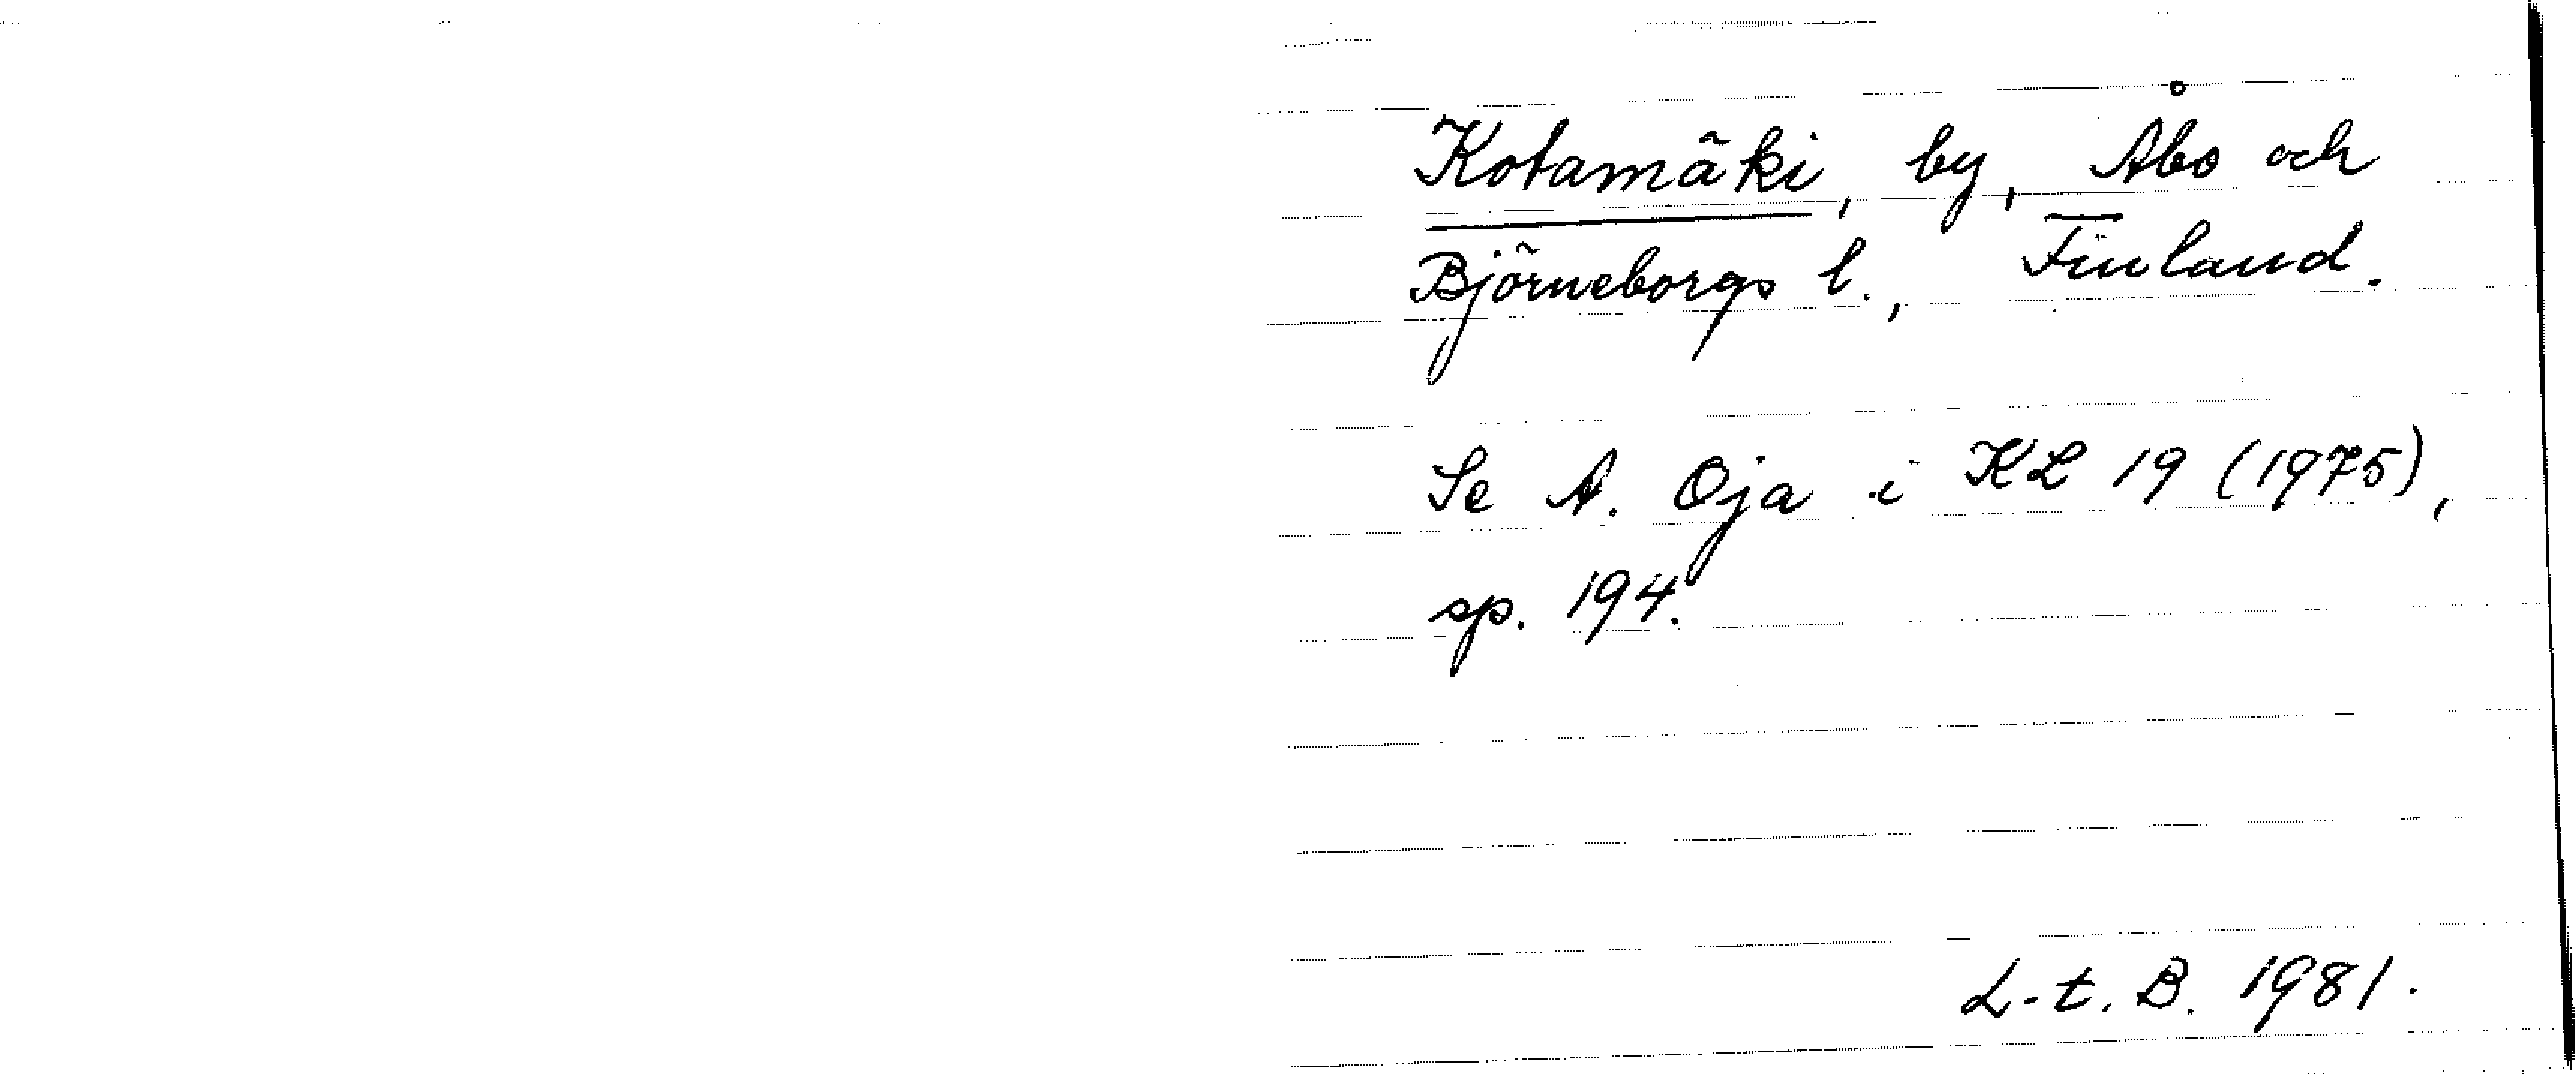 Kotamäki, by, Åbo och
Björneborgs l., Finland.
Se A. Oja i KL 19 (1975),
sp. 194.
L-t. B. 1981.